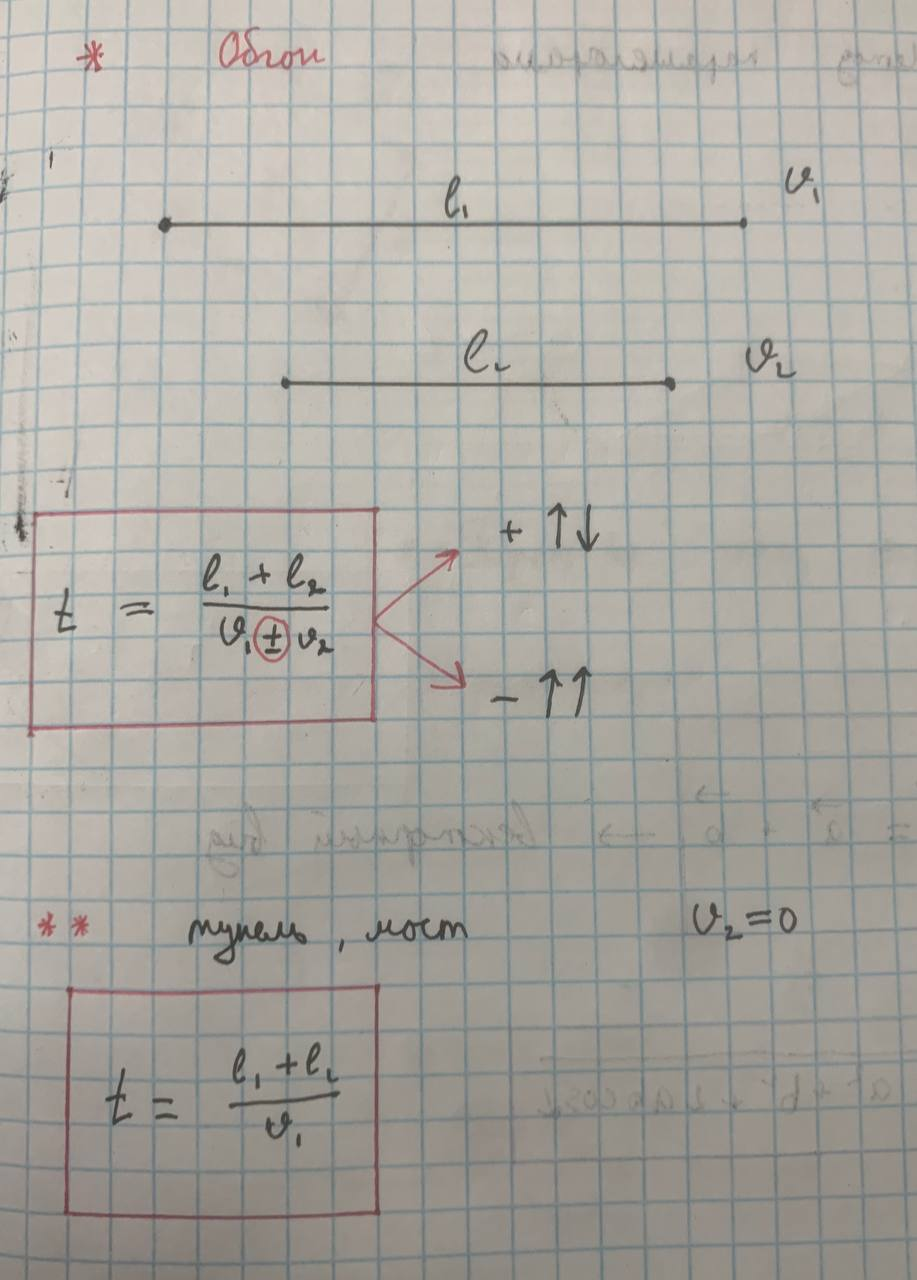 * Обгон
l₁ v₁
l₂ v₂
t = (l₁ + l₂) / (v₁ ± v₂)
+ ↑↓
− ↑↑
** тунель, мост v₂ = 0
t = (l₁ + l₂) / v₁